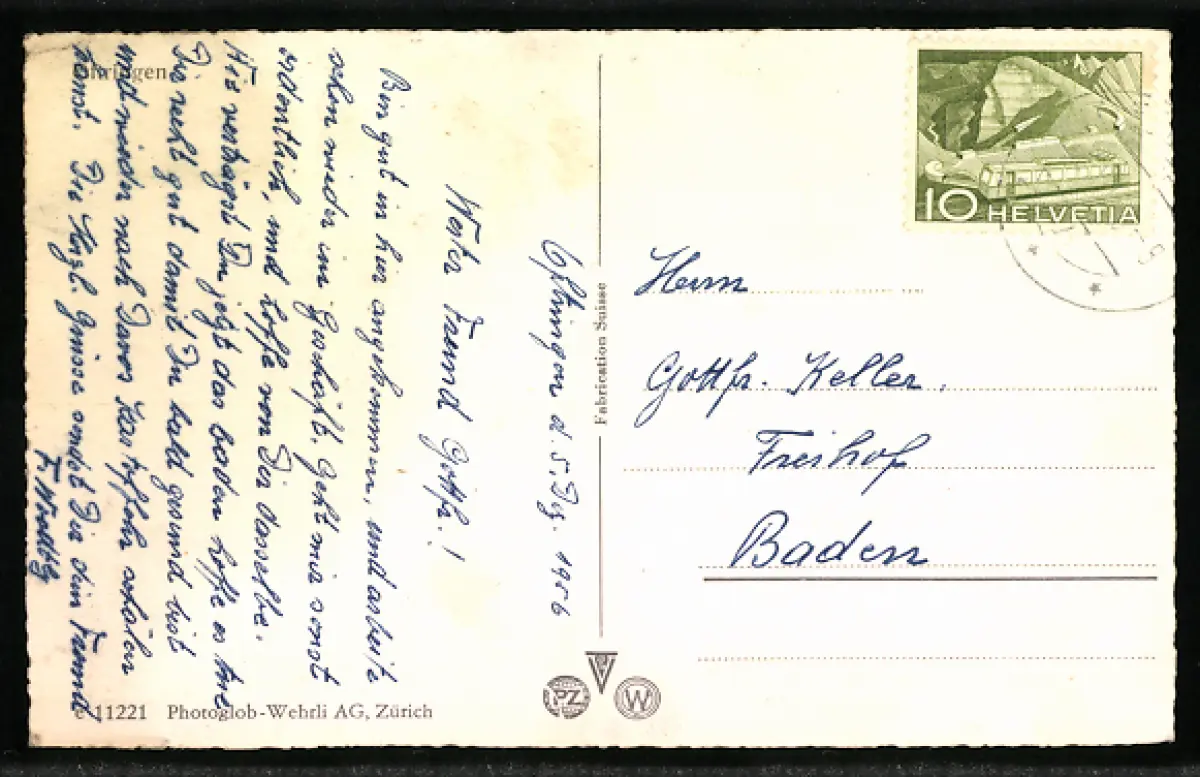 Uhringen
Oftringen d. 5. Dez. 1956
Werter Freund Gottfr.!
Bin gut in hier angekommen, und arbeite
schon wieder im Geschäft. Geht mir sonst
ordentlich, und hoffe von Dir dasselbe.
Wie verträgst Du jetzt das baden hoffe es tue
Dir recht gut damit Du bald gesund bist
und wieder nach Davos
kannst. Die Hrzl. Grüsse sendet Dir dein Freund
Herrn
Gottfr. Keller.
Freihof
Baden
10 HELVETIA
Fabrication Suisse
PZ W
c 11221 Photoglob-Wehrli AG, Zürich